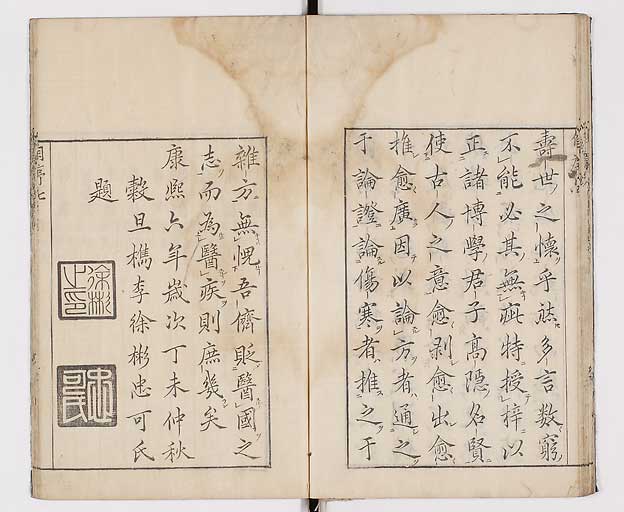 壽世之懷乎然多言數窮
不能必其無疵特授梓以
正諸博學君子高隱名賢
使古人之意愈剥愈出愈
推愈廣因以論方者通之
于論證論傷寒者推之于
雜方無愧吾儕眂醫國之
志而為醫疾則庶幾矣
康熙六年歳次丁未仲秋
穀旦檇李徐彬忠可氏
題
徐彬
之印
忠可氏